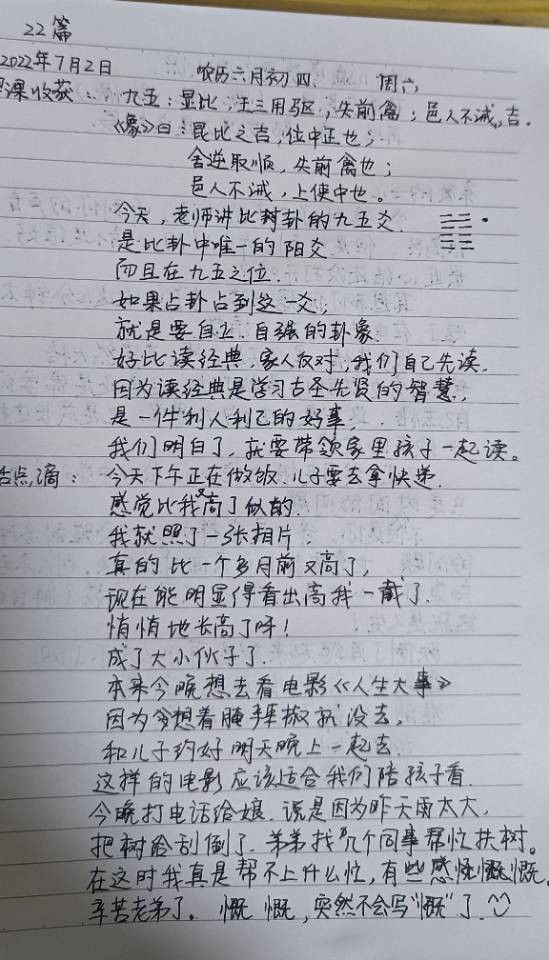 22篇
2022年7月2日 农历六月初四 周六
课收获: 九五:显比,王三用驱,失前禽;邑人不诫,吉.
《象》曰:昆比之吉,位中正也;
舍逆取顺,失前禽也;
邑人不诫,上使中也。
今天,老师讲比封卦的九五爻.
是比卦中唯一的阳爻
而且在九五之位.
如果占卦占到这一爻,
就是要自立.自强的卦象.
好比读经典,家人反对,我们自己先读.
因为读经典是学习古圣先贤的智慧,
是一件利人利己的好事,
我们明白了,就要带领家里孩子一起读。
点滴: 今天下午正在做饭.儿子要去拿快递.
感觉比我又高了似的.
我就照了一张相片,
真的比一个多月前又高了,
现在能明显得看出高我一截了.
悄悄地长高了呀!
成了大小伙子了.
本来今晚想去看电影《人生大事》
因为想着腌辣椒就没去,
和儿子约好明天晚上一起去
这样的电影应该适合我们陪孩子看.
今晚打电话给娘.说是因为昨天雨太大,
把树给刮倒了.弟弟找几个同事帮忙扶树。
在这时我真是帮不上什么忙,有些感慨慨慨.
辛苦老弟了。慨 慨,突然不会写"慨"了.